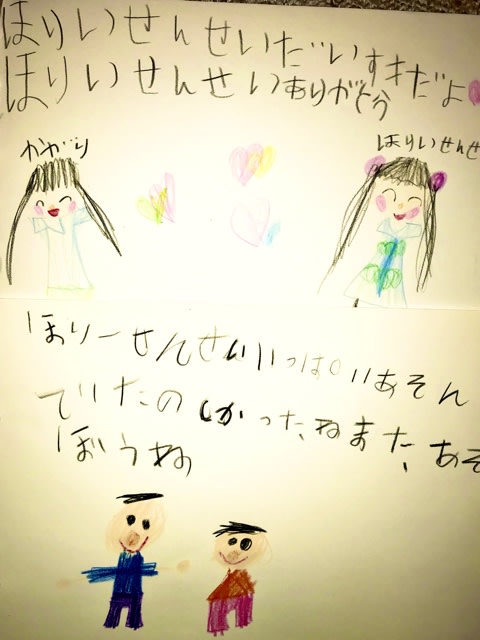 ほりいせんせいだいすきだよ
ほりいせんせいありがとう
かがり
ほりいせんせ
ほりーせんせいいっぱいあそん
でいたのしかったねまた、あそ
ぼうね